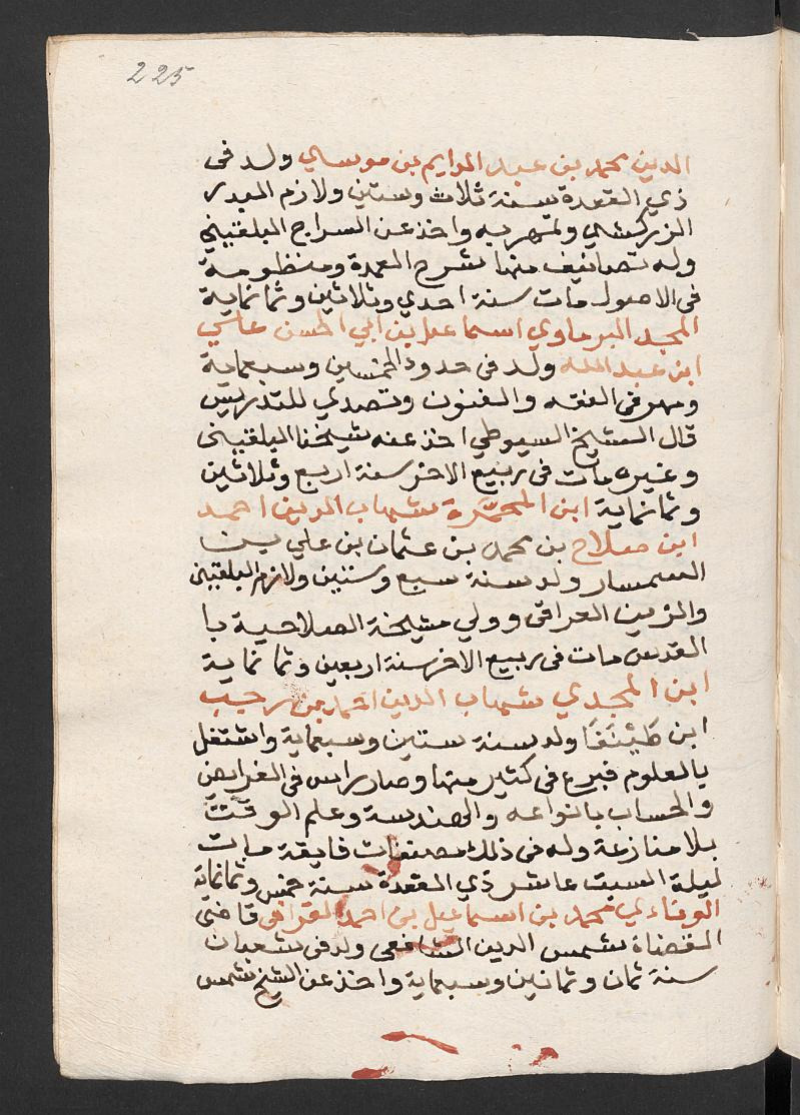 225
الدين محمد بن عبد الدايم بن موسي ولد فى
ذي القعدة سنة ثلاث وستين ولازم البدر
الزركشي وتمهر به واخذ عن السراج البلقينى
وله تصانيف منها شرح العمدة ومنظومة
فى الاصول مات سنة احدي وثلاثين وثمانماية
المجد البرماوي اسماعيل بن ابي الحسن علي
ابن عبد الله ولد فى حدود الخمسين وسبعماية
ومهر فى الفقه والفنون وتصدي للتدريس
قال الشيخ السيوطي اخذ عنه شيخنا البلقينى
وغيره مات فى ربيع الاخر سنة اربع وثلاثين
وثمانماية ابن المحمّرة شهاب الدين احمد
ابن صلاح بن محمد بن عثمان بن علي بن
السمسار ولد سنة سبع وستين ولازم البلقينى
والزين العراقى وولي مشيخة الصلاحية با
القدس مات فى ربيع الاخر سنة اربعين وثمانماية
ابن المجدي شهاب الدين احمد بن رجب
ابن طَيْبَغَا ولد سنة ستين وسبعماية واشتغل
بالعلوم فبرع فى كثير منها وصار راس فى الفرايض
والحساب بانواعه والهندسة وعلم الوقت
بلا منازعة وله فى ذلك مصنفات فايقة مات
ليلة السبت عاشر ذي القعدة سنة خمس وثمانماية
الونادي محمد بن اسماعيل بن احمد القرافى قاضى
القضاة شمس الدين الشافعى ولد فى شعبان
سنة ثمان وثمانين وسبعماية واخذ عن الشيخ شمس